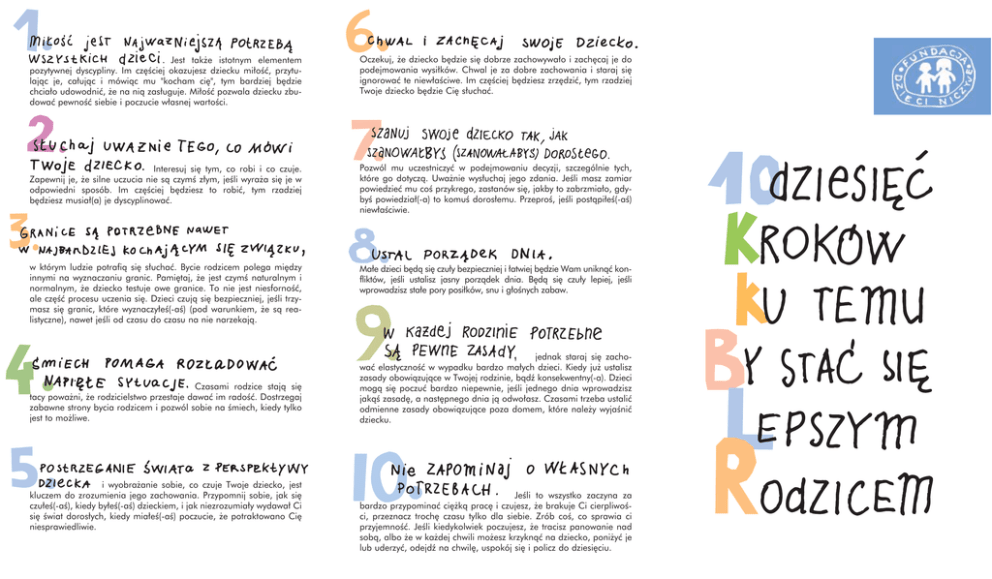 1. Miłość jest najważniejszą potrzebą
wszystkich dzieci. Jest także istotnym elementem
pozytywnej dyscypliny. Im częściej okazujesz dziecku miłość, przytu-
lając je, całując i mówiąc mu "kocham cię", tym bardziej będzie
chciało udowodnić, że na nią zasługuje. Miłość pozwala dziecku zbu-
dować pewność siebie i poczucie własnej wartości.
2. Słuchaj uważnie tego, co mówi
Twoje dziecko. Interesuj się tym, co robi i co czuje.
Zapewnij je, że silne uczucia nie są czymś złym, jeśli wyraża się je w
odpowiedni sposób. Im częściej będziesz to robić, tym rzadziej
będziesz musiał(a) je dyscyplinować.
3. Granice są potrzebne nawet
w najbardziej kochającym się związku,
w którym ludzie potrafią się słuchać. Bycie rodzicem polega między
innymi na wyznaczaniu granic. Pamiętaj, że jest czymś naturalnym i
normalnym, że dziecko testuje owe granice. To nie jest niesforność,
ale część procesu uczenia się. Dzieci czują się bezpieczniej, jeśli trzy-
masz się granic, które wyznaczyłeś(-aś) (pod warunkiem, że są rea-
listyczne), nawet jeśli od czasu do czasu na nie narzekają.
4. Śmiech pomaga rozładować
napięte sytuacje. Czasami rodzice stają się
tacy poważni, że rodzicielstwo przestaje dawać im radość. Dostrzegaj
zabawne strony bycia rodzicem i pozwól sobie na śmiech, kiedy tylko
jest to możliwe.
5. Postrzeganie świata z perspektywy
dziecka i wyobrażanie sobie, co czuje Twoje dziecko, jest
kluczem do zrozumienia jego zachowania. Przypomnij sobie, jak się
czułeś(-aś), kiedy byłeś(-aś) dzieckiem, i jak niezrozumiały wydawał Ci
się świat dorosłych, kiedy miałeś(-aś) poczucie, że potraktowano Cię
niesprawiedliwie.
6. Chwal i zachęcaj swoje dziecko.
Oczekuj, że dziecko będzie się dobrze zachowywało i zachęcaj je do
podejmowania wysiłków. Chwal je za dobre zachowania i staraj się
ignorować te niewłaściwe. Im częściej będziesz zrzędzić, tym rzadziej
Twoje dziecko będzie Cię słuchać.
7. Szanuj swoje dziecko tak, jak
szanowałbyś (szanowałabyś) dorosłego.
Pozwól mu uczestniczyć w podejmowaniu decyzji, szczególnie tych,
które go dotyczą. Uważnie wysłuchaj jego zdania. Jeśli masz zamiar
powiedzieć mu coś przykrego, zastanów się, jakby to zabrzmiało, gdy-
byś powiedział(-a) to komuś dorosłemu. Przeproś, jeśli postąpiłeś(-aś)
niewłaściwie.
8. Ustal porządek dnia.
Małe dzieci będą się czuły bezpieczniej i łatwiej będzie Wam uniknąć kon-
fliktów, jeśli ustalisz jasny porządek dnia. Będą się czuły lepiej, jeśli
wprowadzisz stałe pory posiłków, snu i głośnych zabaw.
9. W każdej rodzinie potrzebne
są pewne zasady, jednak staraj się zacho-
wać elastyczność w wypadku bardzo małych dzieci. Kiedy już ustalisz
zasady obowiązujące w Twojej rodzinie, bądź konsekwentny(-a). Dzieci
mogą się poczuć bardzo niepewnie, jeśli jednego dnia wprowadzisz
jakąś zasadę, a następnego dnia ją odwołasz. Czasami trzeba ustalić
odmienne zasady obowiązujące poza domem, które należy wyjaśnić
dziecku.
10. Nie zapominaj o własnych
potrzebach. Jeśli to wszystko zaczyna za
bardzo przypominać ciężką pracę i czujesz, że brakuje Ci cierpliwoś-
ci, przeznacz trochę czasu tylko dla siebie. Zrób coś, co sprawia ci
przyjemność. Jeśli kiedykolwiek poczujesz, że tracisz panowanie nad
sobą, albo że w każdej chwili możesz krzyknąć na dziecko, poniżyć je
lub uderzyć, odejdź na chwilę, uspokój się i policz do dziesięciu.
FUNDACJA
DZIECI NICZYJE
10 dziesięć
Kroków
ku temu
By stać się
Lepszym
Rodzicem